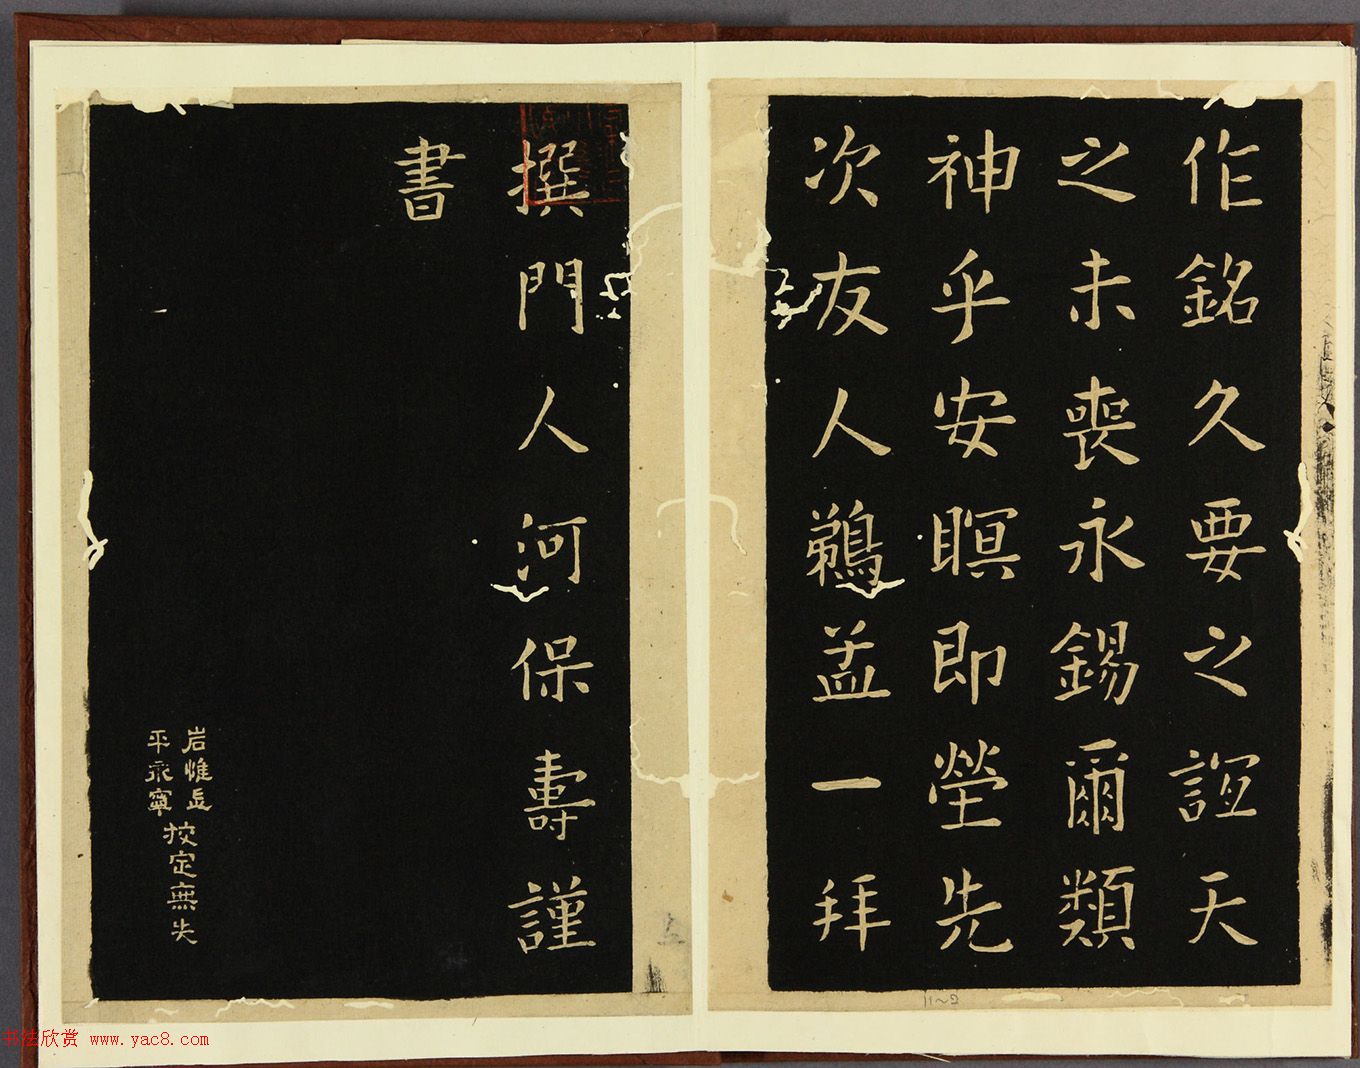 作銘久要之誼天
之未喪永錫爾類
神乎安瞑即塋先
次友人鵜孟一拜
撰門人河保壽謹
書
岩惟長
平永寧
按定無失
书法欣赏 www.yac8.com